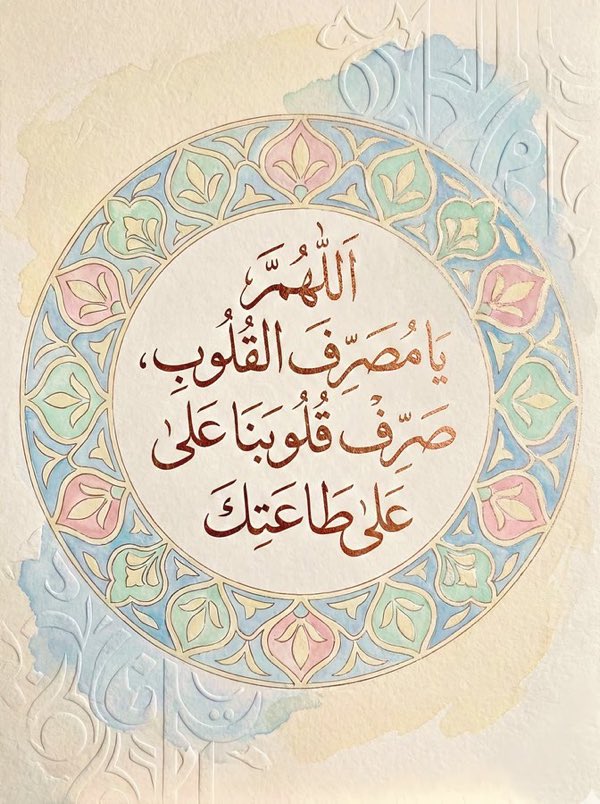 اَللّٰهُمَّ
يَا مُصَرِّفَ القُلُوبِ،
صَرِّفْ قُلُوبَنَا عَلىٰ
عَلىٰ طَاعَتِكَ